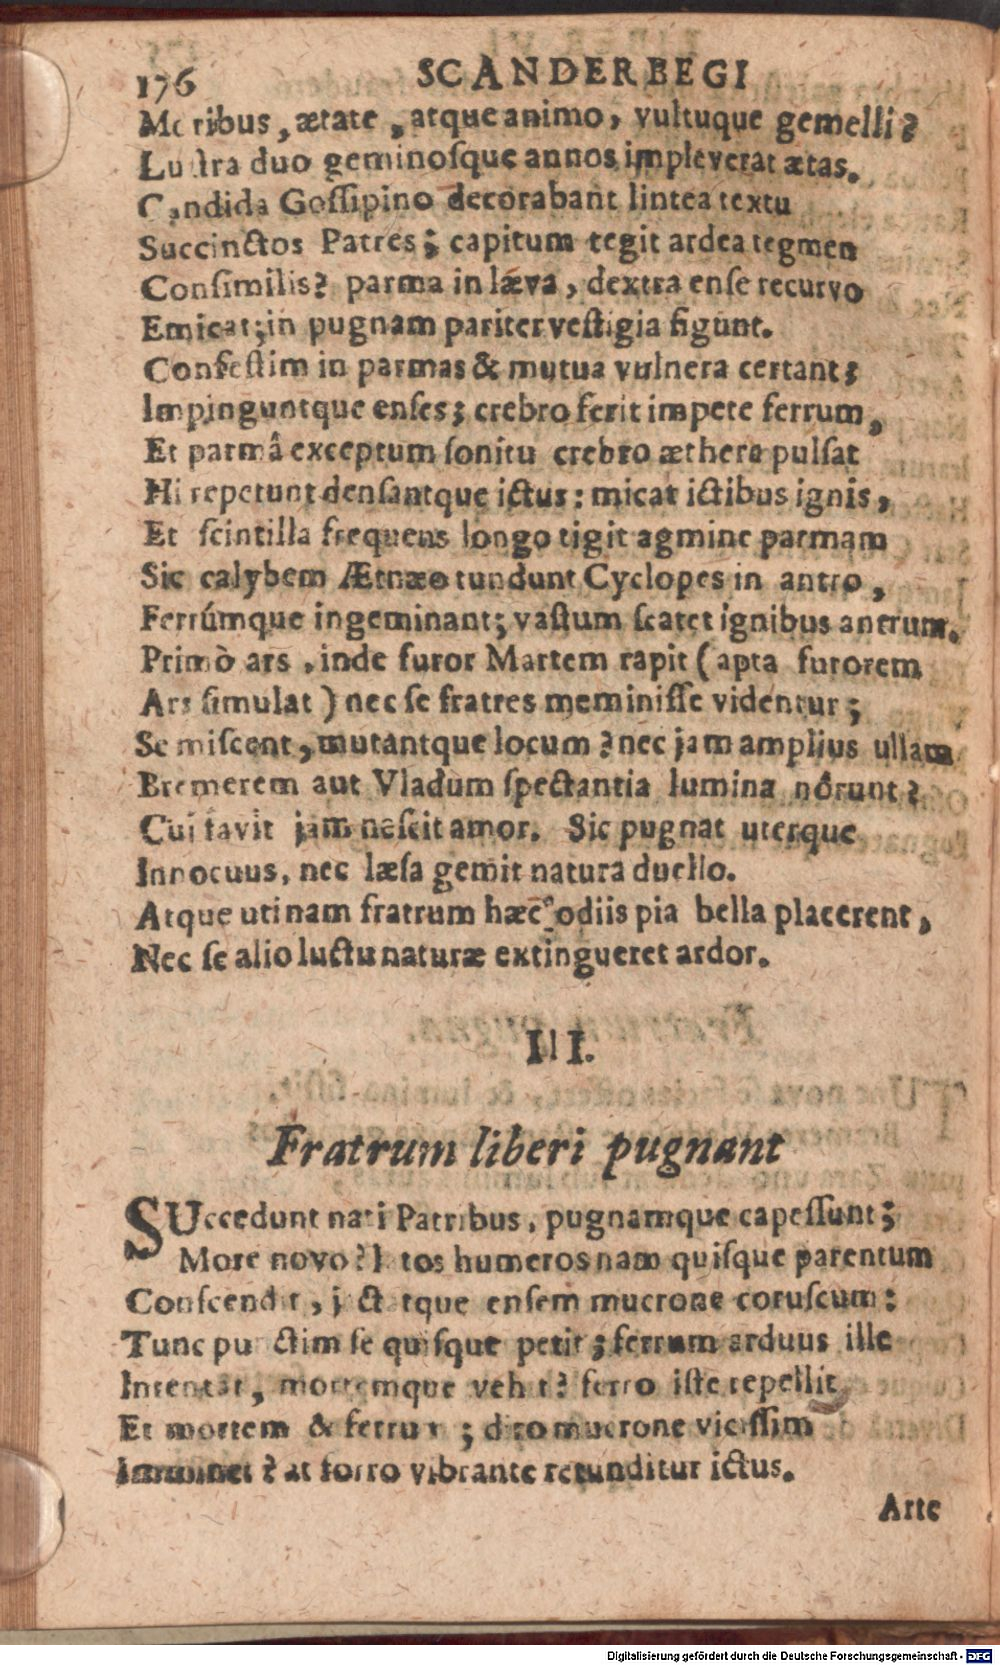 176 SCANDERBEGI
Moribus, ætate, atque animo, vultuque gemelli?
Lustra duo geminosque annos impleverat ætas.
Candida Gossipino decorabant lintea textu
Succinctos Patres; capitum tegit ardea tegmen
Consimilis? parma in læva, dextra ense recurvo
Emicat; in pugnam pariter vestigia figunt.
Confestim in parmas & mutua vulnera certant;
Impinguntque enses; crebro ferit impete ferrum,
Et parmâ exceptum sonitu crebro æthera pulsat
Hi repetunt densantque ictus: micat ictibus ignis,
Et scintilla frequens longo tigit agmine parmam
Sic calybem Ætnæo tundunt Cyclopes in antro,
Ferrúmque ingeminant; vastum scatet ignibus antrum.
Primò ars, inde furor Martem rapit (apta furorem
Ars simulat) nec se fratres meminisse videntur;
Se miscent, mutantque locum? nec jam amplius ullam
Bremerem aut Vladum spectantia lumina nôrunt?
Cui favit jam nescit amor. Sic pugnat uterque
Innocuus, nec læsa gemit natura duello.
Atque utinam fratrum hæc odiis pia bella placerent,
Nec se alio luctu naturæ extingueret ardor.
III.
Fratrum liberi pugnant
SUccedunt nati Patribus, pugnamque capessunt;
More novo? tos humeros nam quisque parentum
Conscendit, jactatque ensem mucrone coruscum:
Tunc punctim se quisque petit; ferrum arduus ille
Intentat, mortemque vehit? ferro iste repellit
Et mortem & ferrum; dito mucrone vicissim
Imminet? at forro vibrante retunditur ictus.
Arte
Digitalisierung gefördert durch die Deutsche Forschungsgemeinschaft - DFG